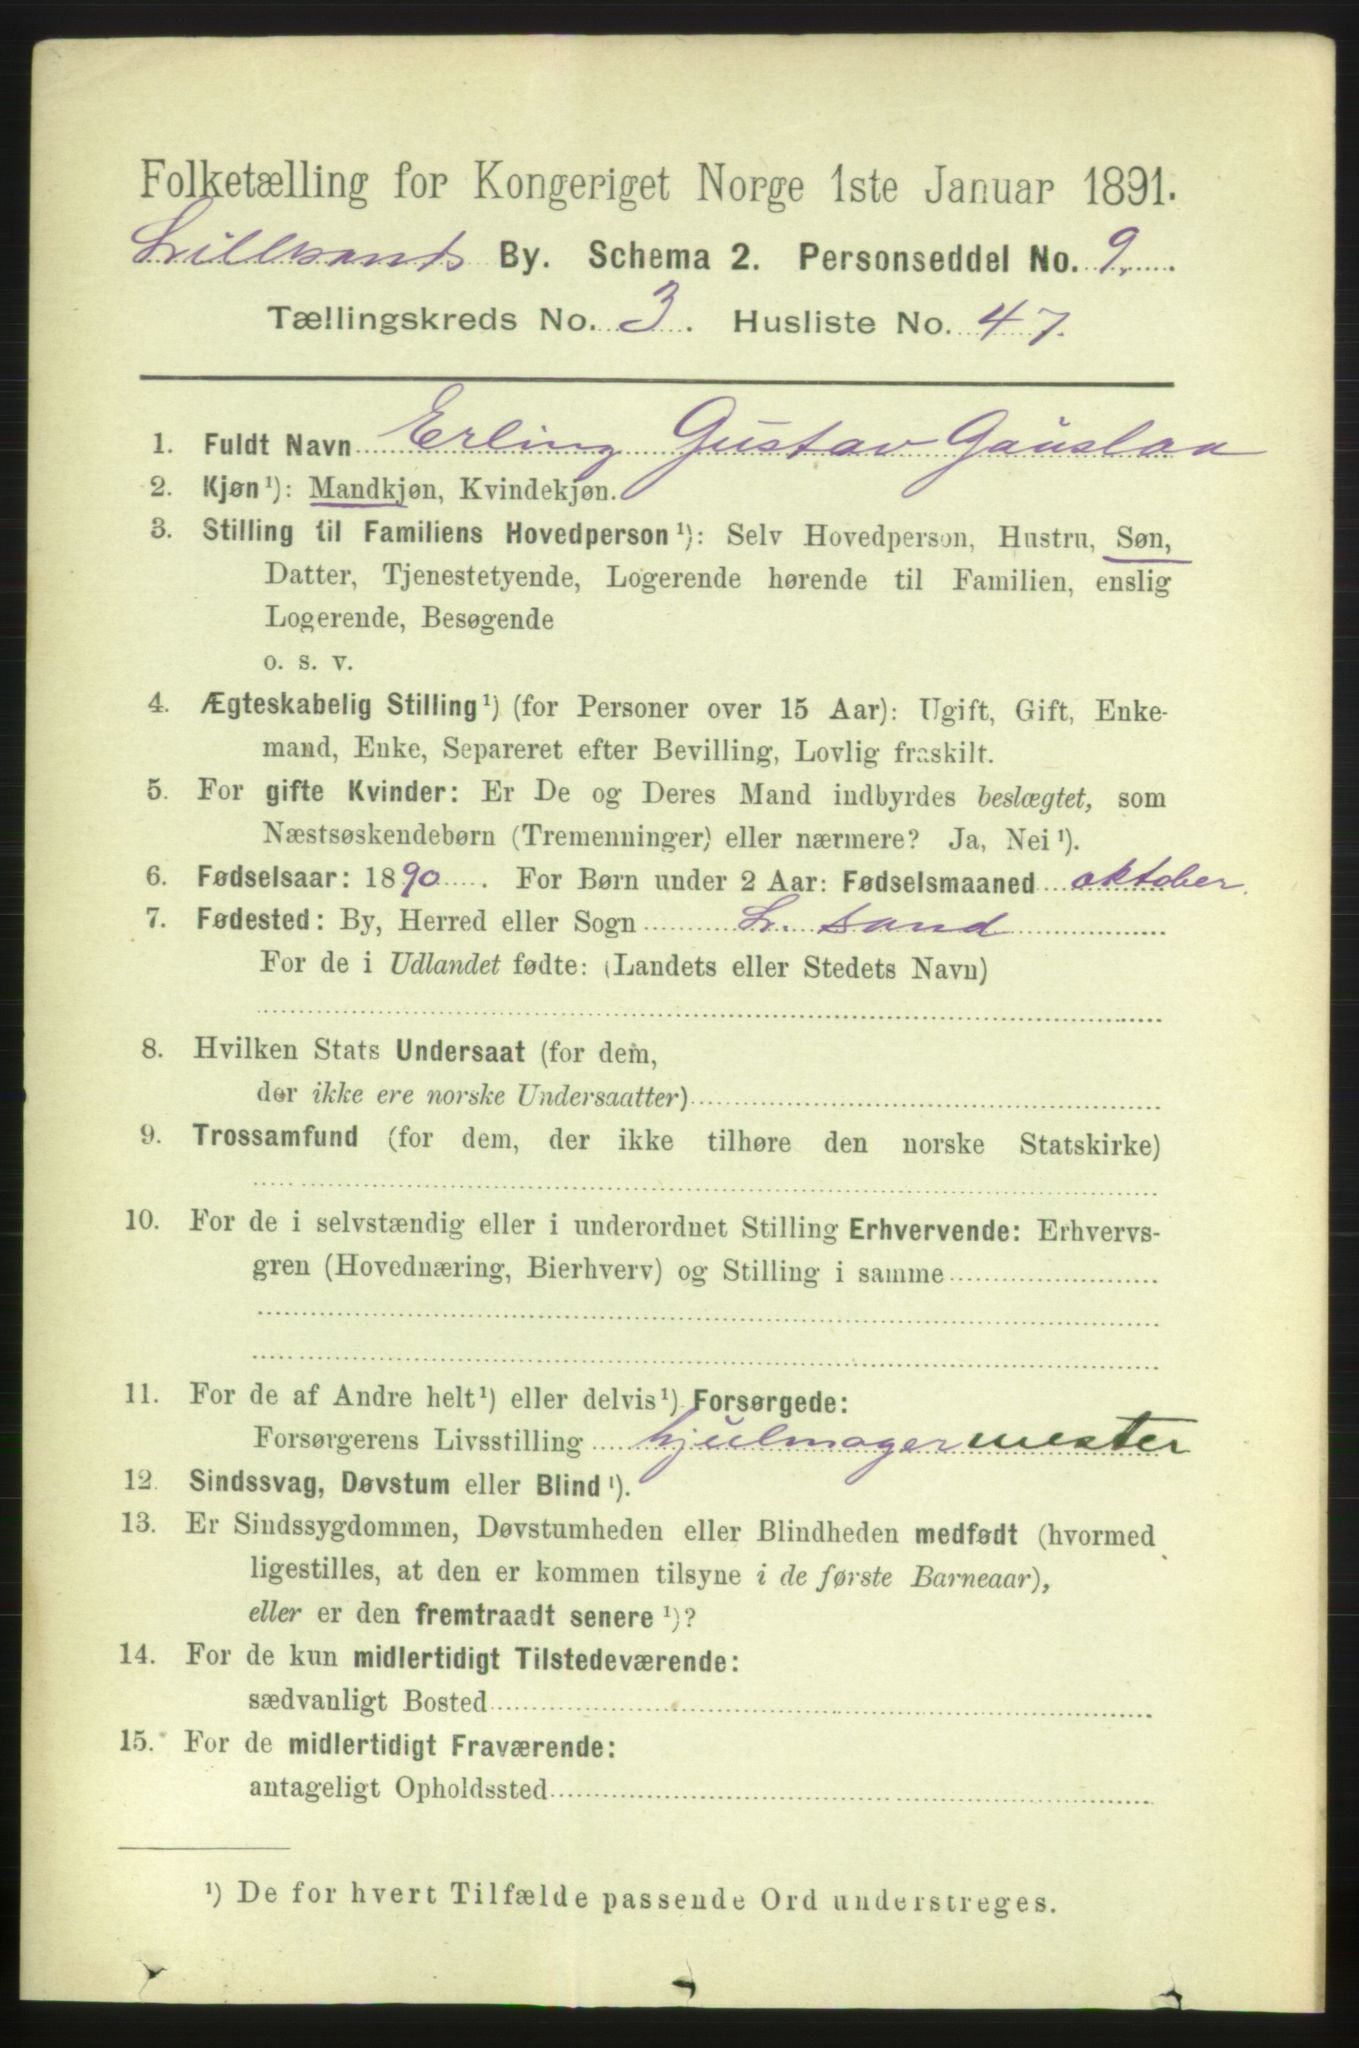 Folketælling for Kongeriget Norge 1ste Januar 1891.
Lillesands By. Schema 2. Personseddel No. 9.
Tællingskreds No. 3. Husliste No. 47.
1. Fuldt Navn Erling Gustav Gauslaa
2. Kjøn¹): Mandkjøn, Kvindekjøn.
3. Stilling til Familiens Hovedperson¹): Selv Hovedperson, Hustru, Søn,
Datter, Tjenestetyende, Logerende hørende til Familien, enslig
Logerende, Besøgende
o. s. v.
4. Ægteskabelig Stilling¹) (for Personer over 15 Aar): Ugift, Gift, Enke-
mand, Enke, Separeret efter Bevilling, Lovlig fraskilt.
5. For gifte Kvinder: Er De og Deres Mand indbyrdes beslægtet, som
Næstsøskendebørn (Tremenninger) eller nærmere? Ja, Nei¹).
6. Fødselsaar: 1890. For Børn under 2 Aar: Fødselsmaaned oktober.
7. Fødested: By, Herred eller Sogn L. sand
For de i Udlandet fødte: (Landets eller Stedets Navn)
8. Hvilken Stats Undersaat (for dem,
der ikke ere norske Undersaatter)
9. Trossamfund (for dem, der ikke tilhøre den norske Statskirke)
10. For de i selvstændig eller i underordnet Stilling Erhvervende: Erhvervs-
gren (Hovednæring, Bierhverv) og Stilling i samme
11. For de af Andre helt¹) eller delvis¹) Forsørgede:
Forsørgerens Livsstilling hjulmagermester
12. Sindssvag, Døvstum eller Blind¹).
13. Er Sindssygdommen, Døvstumheden eller Blindheden medfødt (hvormed
ligestilles, at den er kommen tilsyne i de første Barneaar),
eller er den fremtraadt senere¹)?
14. For de kun midlertidigt Tilstedeværende:
sædvanligt Bosted
15. For de midlertidigt Fraværende:
antageligt Opholdssted
¹) De for hvert Tilfælde passende Ord understreges.